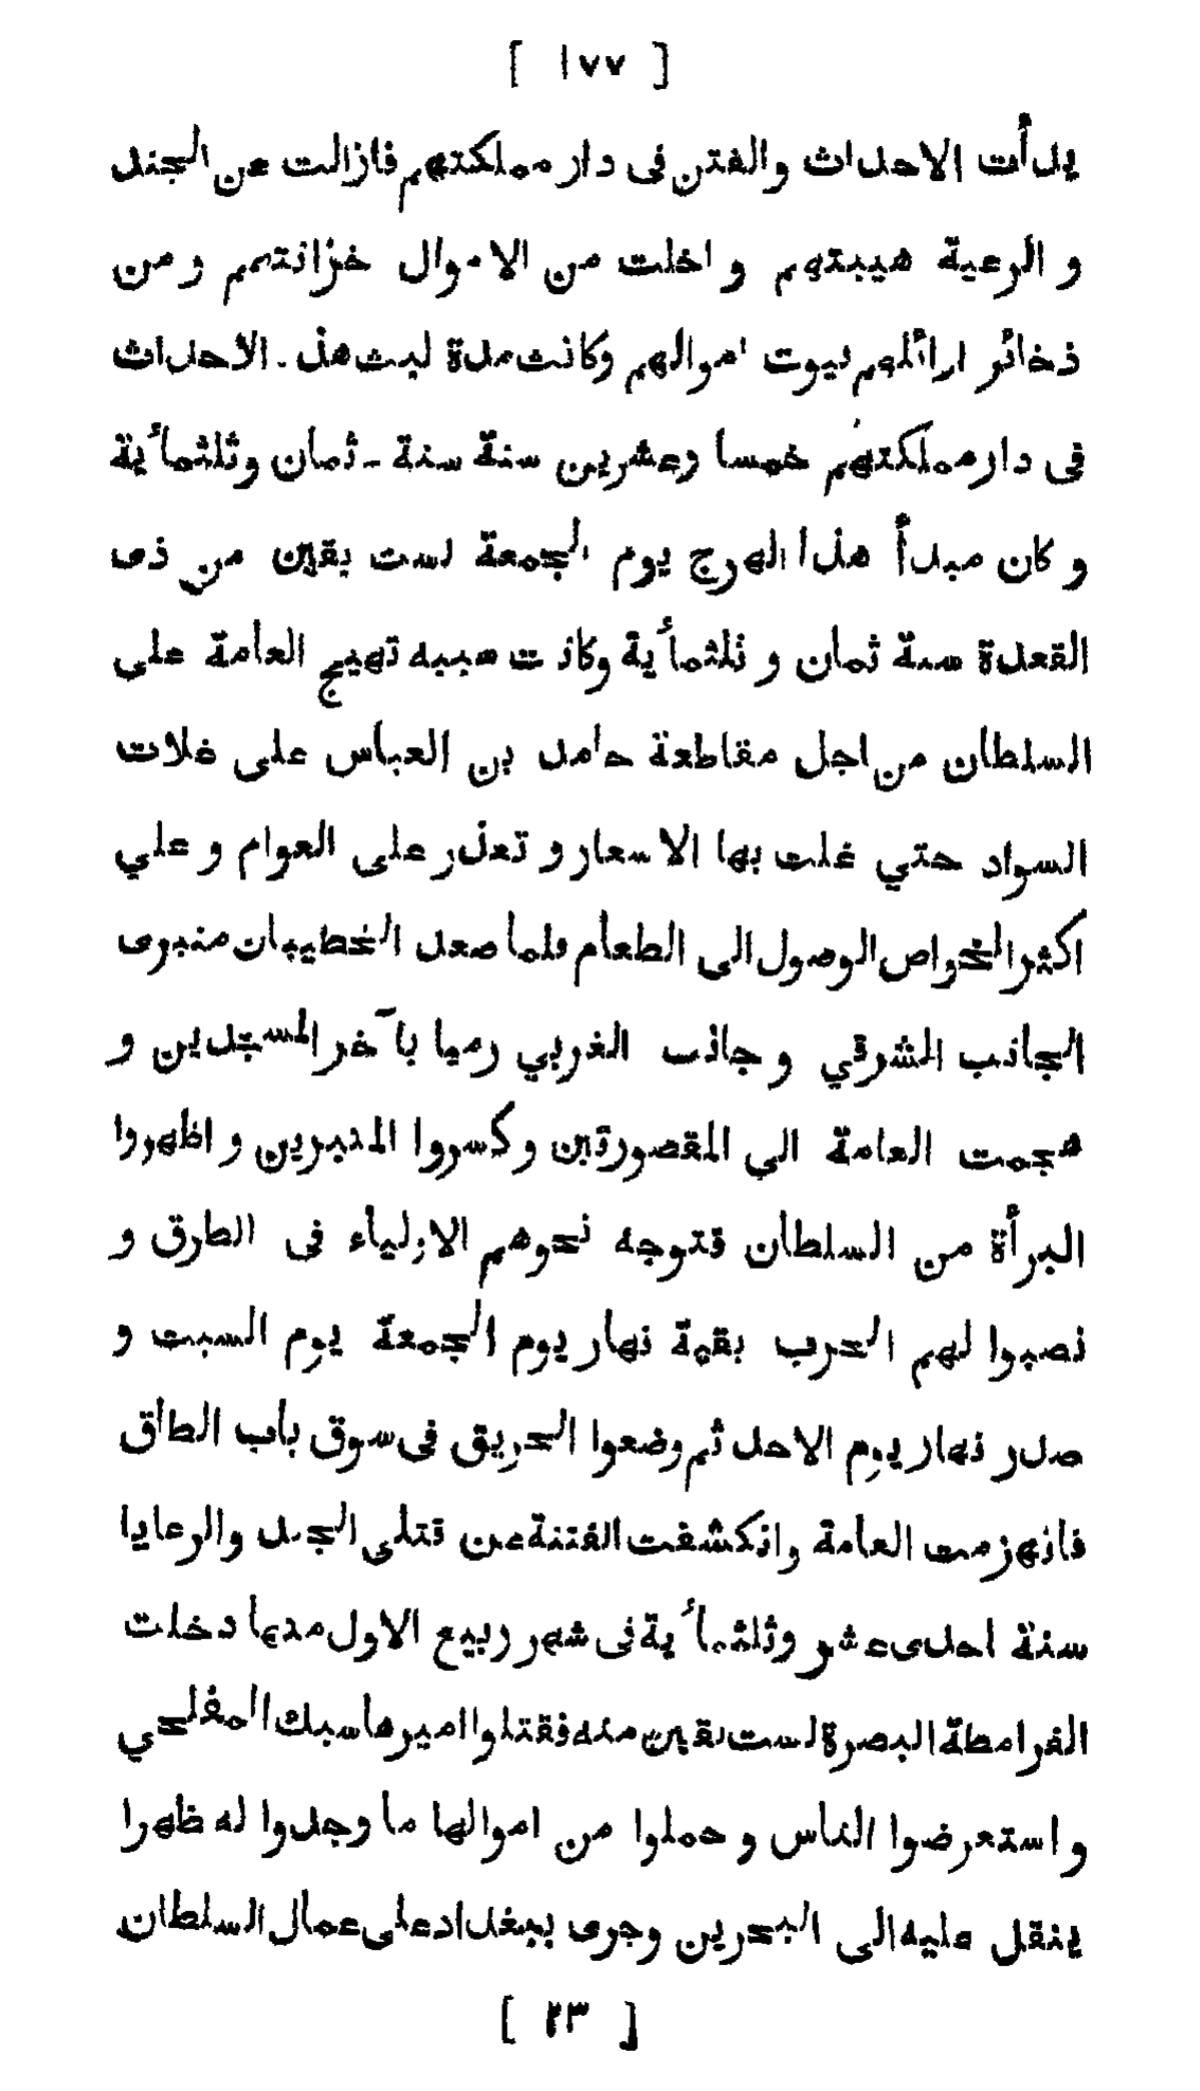 [ ١٧٧ ]
بدأت الاحداث والفتن فى دار مملكتهم فازالت عن الجند
و الرعية هيبتهم و اخلت من الاموال خزانتهم ومن
ذخائر اوائلهم بيوت اموالهم وكانت مدة لبث هذه الاحداث
فى دار مملكتهم خمسا وعشرين سنة سنة ـ ثمان وثلثمأية
و كان مبدأ هذا الهرج يوم الجمعة لست بقين من ذى
القعدة سنة ثمان و ثلثمأية وكانت سببه تهييج العامة على
السلطان من اجل مقاطعة حامد بن العباس على غلات
السواد حتي غلت بها الاسعار و تعذر على العوام و علي
اكثر الخواص الوصول الى الطعام فلما صعد الخطيبان منبرى
الجانب الشرقي و جانب الغربي رميا بآخر المسجدين و
هجمت العامة الي المقصورتين و كسروا المنبرين و اظهروا
البرأة من السلطان فتوجه نحوهم الاولياء فى الطرق و
نصبوا لهم الحرب بقية نهار يوم الجمعة يوم السبت و
صدر نهار يوم الاحد ثم وضعوا الحريق فى سوق باب الطاق
فانهزمت العامة وانكشفت الفتنة عن قتلى الجند والرعايا
سنة احدى عشر وثلثمأية فى شهر ربيع الاول منها دخلت
القرامطة البصرة لست بقين منه فقتلوا اميرها سبك المفلحي
و استعرضوا الناس و حملوا من اموالها ما وجدوا له ظهرا
ينقل عليه الى البحرين وجرى ببغداد على عمال السلطان
[ ٢٣ ]